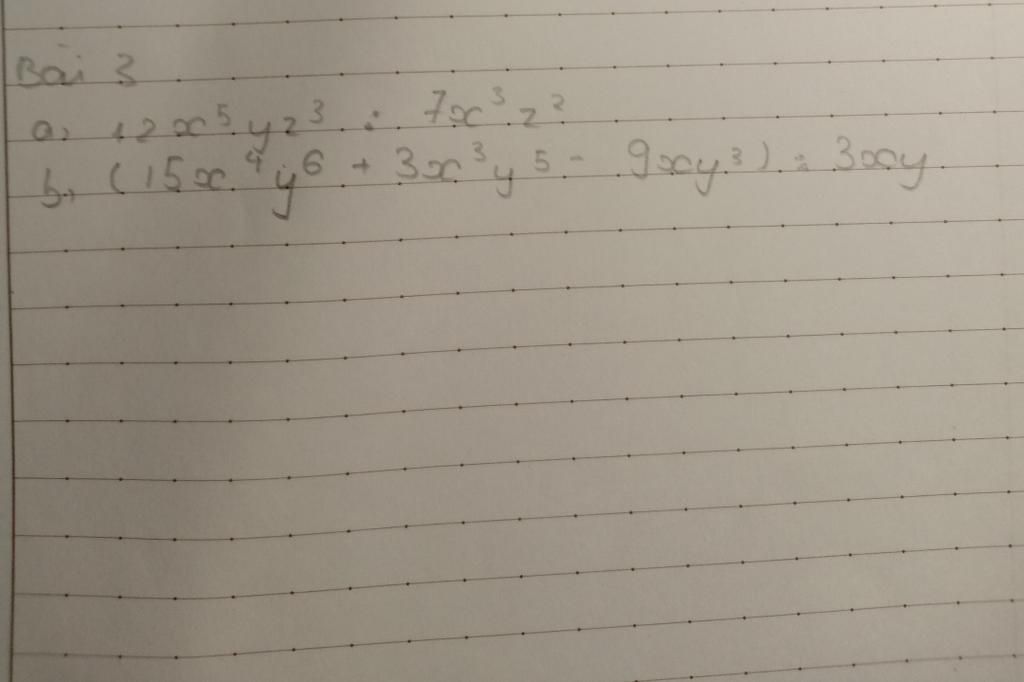 Bài 3
a, 12x⁵yz³ : 7x³z²
b, (15x⁴y⁶ + 3x³y⁵ - 9xy³) : 3xy